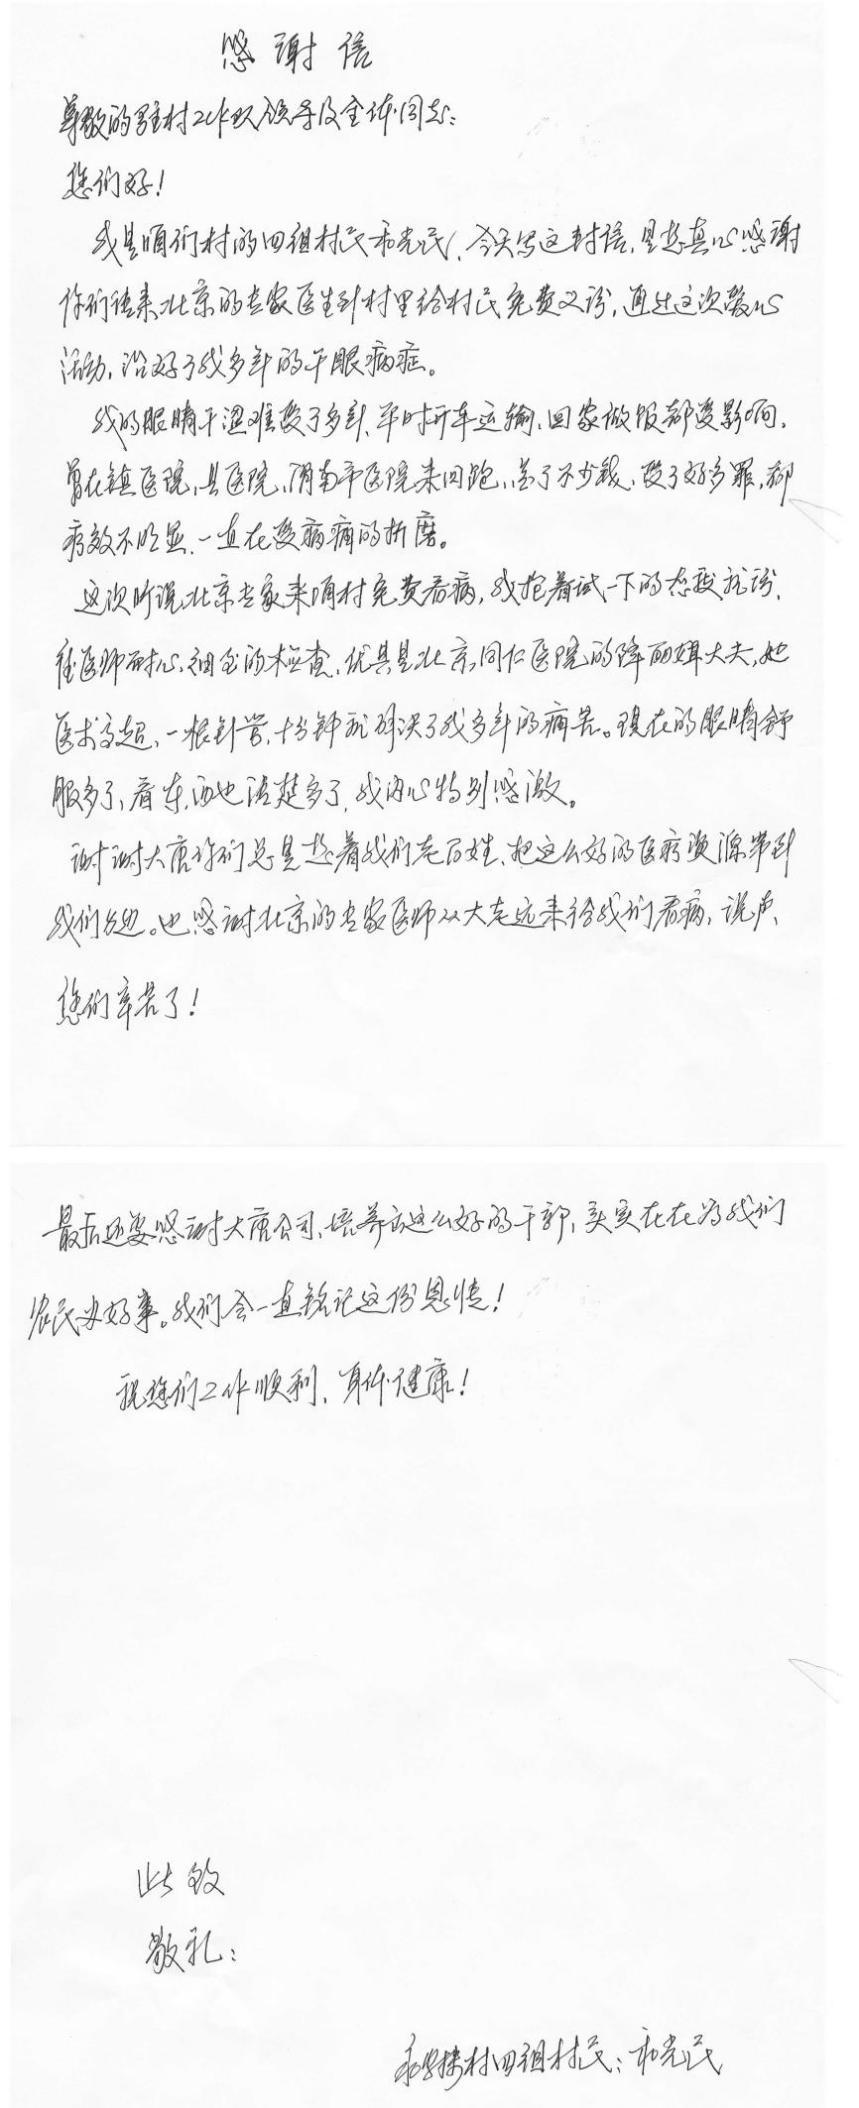 感谢信
尊敬的驻村工作队领导及全体同志:
您们好!
我是咱们村的四组村民和光民,今天写这封信,是想真心感谢
你们请来北京的专家医生到村里给村民免费义诊,通过这次暖心
活动,治好了我多年的干眼病症。
我的眼睛干涩难受了多年,平时开车运输,回家做饭都受影响,
曾在镇医院,县医院,渭南市医院来回跑,花了不少钱,受了好多罪,却
疗效不明显,一直在受病痛的折磨。
这次听说北京专家来咱村免费看病,我抱着试一下的态度就诊,
经医师耐心,细致的检查,尤其是北京同仁医院的陈丽娟大夫,她
医术高超,一根针管,十分钟就解决了我多年的痛苦。现在的眼睛舒
服多了,看东西也清楚多了,我内心特别感激。
谢谢大唐你们总是想着我们老百姓,把这么好的医疗资源带到
我们身边。也感谢北京的专家医师从大老远来给我们看病,说声,
您们辛苦了!
最后还要感谢大唐公司,培养出这么好的干部,实实在在为我们
农民办好事。我们会一直铭记这份恩情!
祝您们工作顺利,身体健康!
此致
敬礼:
村四组村民:和光民